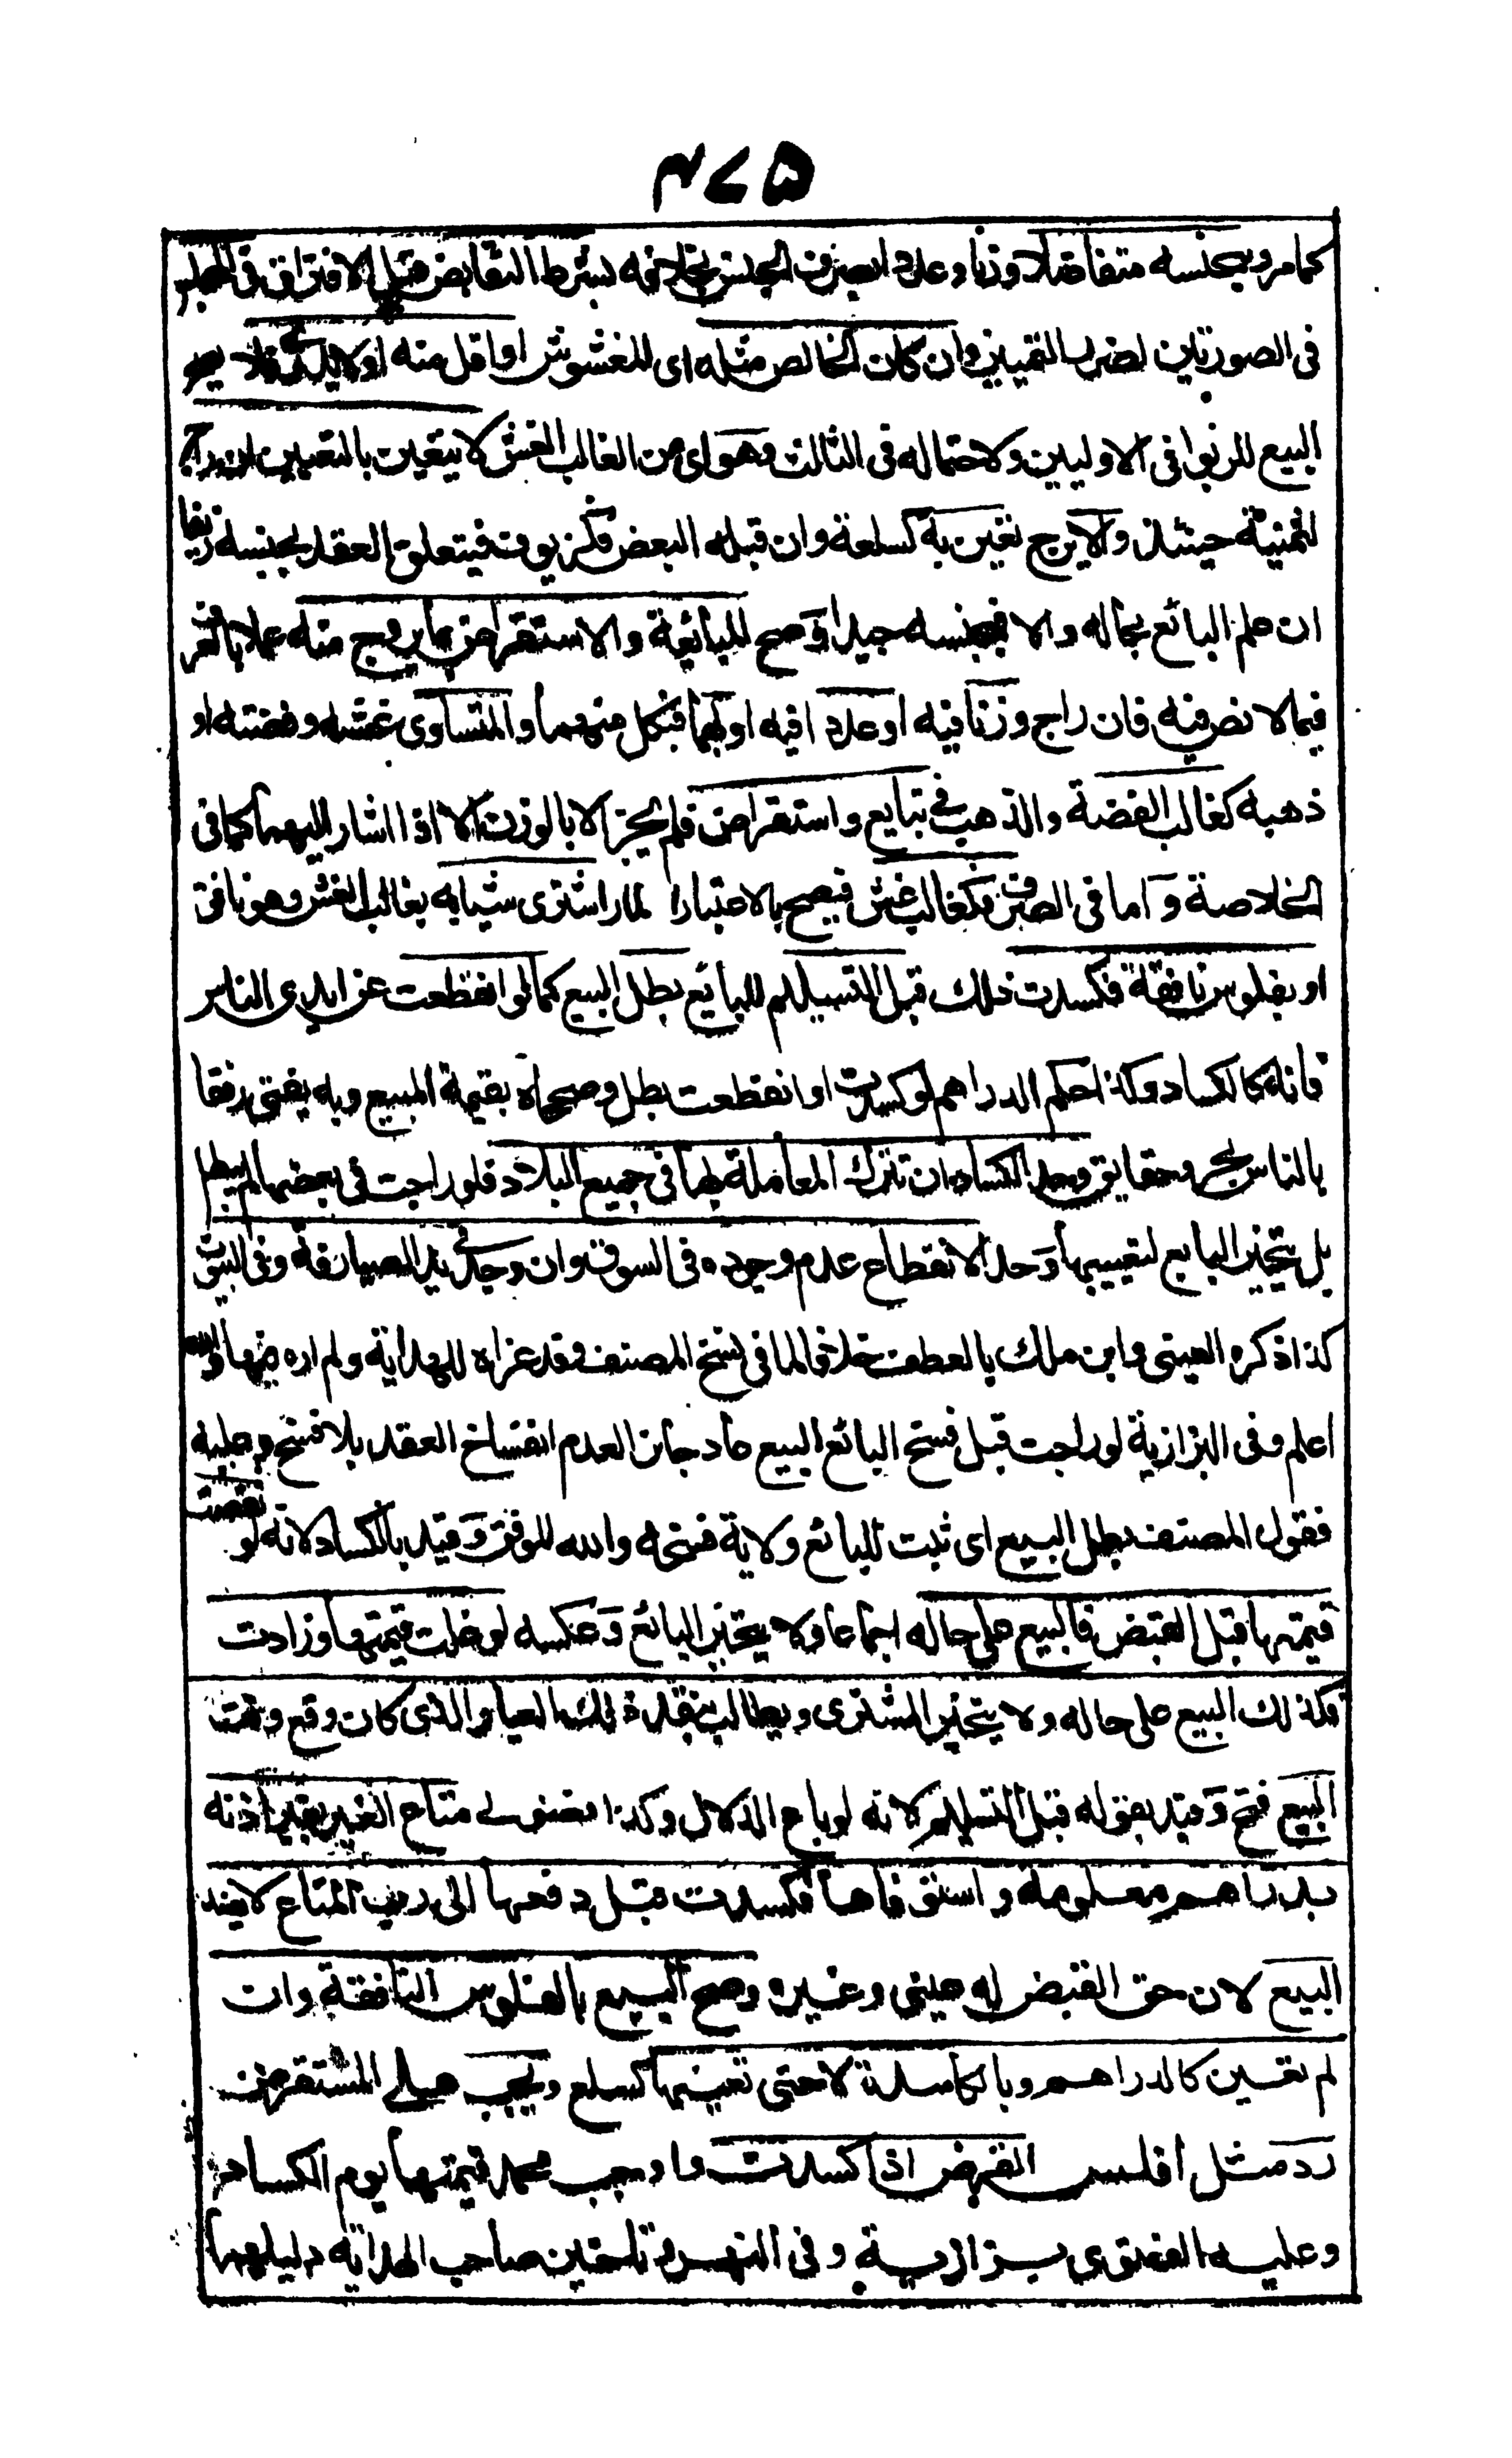 ۴۷۵
كما مر وبجنسه متفاضلا وزنا وعددا بصرف الجنس بخلافه بشرط التقابض قبل الافتراق فى المجلس
فى الصورتين لضرر التمييز وان كان الخالص مثله اى المغشوش او اقل منه او لا يدرى فلا يصح
البيع للربوا فى الاوليين ولاحتماله فى الثالث وهو اى من الغالب الغش لا يتعين بالتعيين ان راج
لثمنيته حينئذ والا يرج تعين به كسلعة وان قبله البعض فكزيوف فيتعلق العقد بجنسه زيفا
ان علم البائع بحاله والا فبجنسه جيدا وصح المبايعة والاستقراض بما يروج منه عملا بالعرف
فيما لا نص فيه فان راج وزنا فيه او عددا فيه او بهما فبكل منهما والمتساوى غشه وفضته او
ذهبه كغالب الفضة والذهب فى تبايع واستقراض فلم يجز الا بالوزن الا اذا اشار اليهما كما فى
الخلاصة واما فى الصرف فكغالب غش فيصح بالاعتبار المار اشترى شيا به بغالب الغش وهو نافق
او بفلوس نافقة فكسدت ذلك قبل التسليم للبائع بطل البيع كما لو انقطعت عن ايدى الناس
فانه كالكساد وكذا حكم الدراهم لو كسدت او انقطعت بطل وصححاه بقيمة المبيع وبه يفتى رفقا
بالناس بحر وحقايق وحد الكساد ان تترك المعاملة بها فى جميع البلاد فلو راجت فى بعضها لم يبطل
بل يتخير البايع لتعييبها وحد الانقطاع عدم وجوده فى السوق وان وجد فى يد الصيارفة وفى البيوت
كذا ذكره العينى وابن ملك بالعطف خلافا لما فى نسخ المصنف وقد عزاه للهداية ولم اره فيها والله
اعلم وفى البزازية لو راجت قبل فسخ البائع البيع عاد جائزا لعدم انفساخ العقد بلا فسخ وعليه
فقول المصنف بطل البيع اى ثبت للبائع ولاية فسخه والله الموفق وقيد بالكساد لانه لو نقصت
قيمتها قبل القبض فالبيع على حاله اجماعا ولا يتخير البائع وعكسه لو غلت قيمتها وزادت
فكذلك البيع على حاله ولا يتخير المشترى ويطالب بنقد ذلك العيار الذى كان وقع وقت
البيع فتح وقيد بقوله قبل التسليم لانه لو باع الدلال وكذا فضولى متاع الغير بغير اذنه
بدراهم معلومة واستوفاها فكسدت قبل دفعها الى رب المتاع لا يفسد
البيع لان حق القبض له عينى وغيره وصح البيع بالفلوس النافقة وان
لم تعين كالدراهم وبالكاسدة لا حتى تعينها كسلع ويجب على المستقرض
رد مثل افلس القرض اذا كسدت واوجب محمد قيمتها يوم الكساد
وعليه الفتوى بزازية وفى النهر وتاخير صاحب الهداية دليلهما